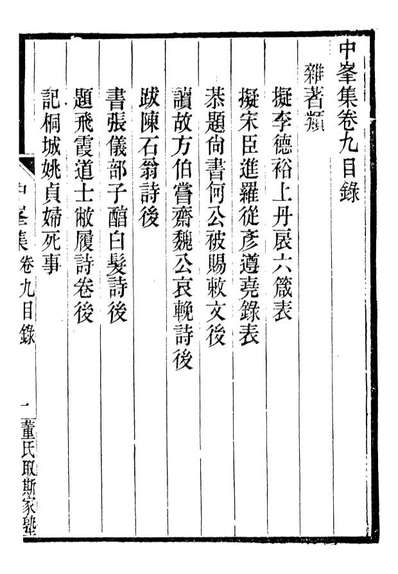 中峯集卷九目錄
雜著類
擬李德裕上丹扆六箴表
擬宋臣進羅從彥遵堯錄表
恭題尙書何公被賜敕文後
讀故方伯嘗齋魏公哀輓詩後
跋陳石翁詩後
書張儀部子醕白髮詩後
題飛霞道士敝履詩卷後
記桐城姚貞婦死事
中峯集 卷九目錄 一 董氏取斯家塾